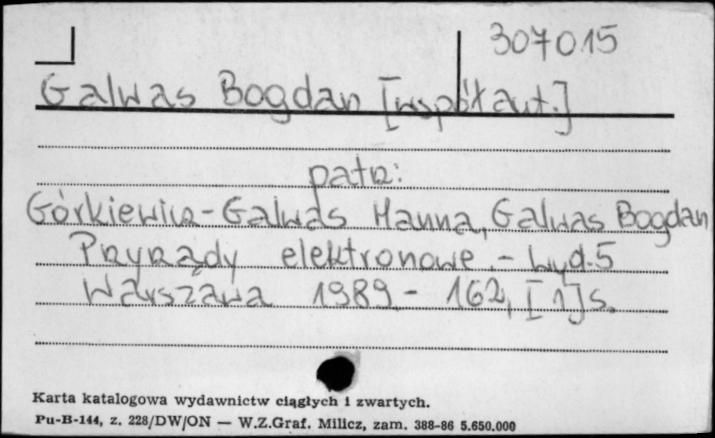 307015
Galwas Bogdan [współaut.]
patrz:
Górkiewicz-Galwas Hanna, Galwas Bogdan
Przyrządy elektronowe. - Wyd. 5
Warszawa 1989 - 162, [1] s.
Karta katalogowa wydawnictw ciągłych i zwartych.
Pu-B-144, z. 228/DW/ON — W.Z.Graf. Milicz, zam. 388-86 5.650.000